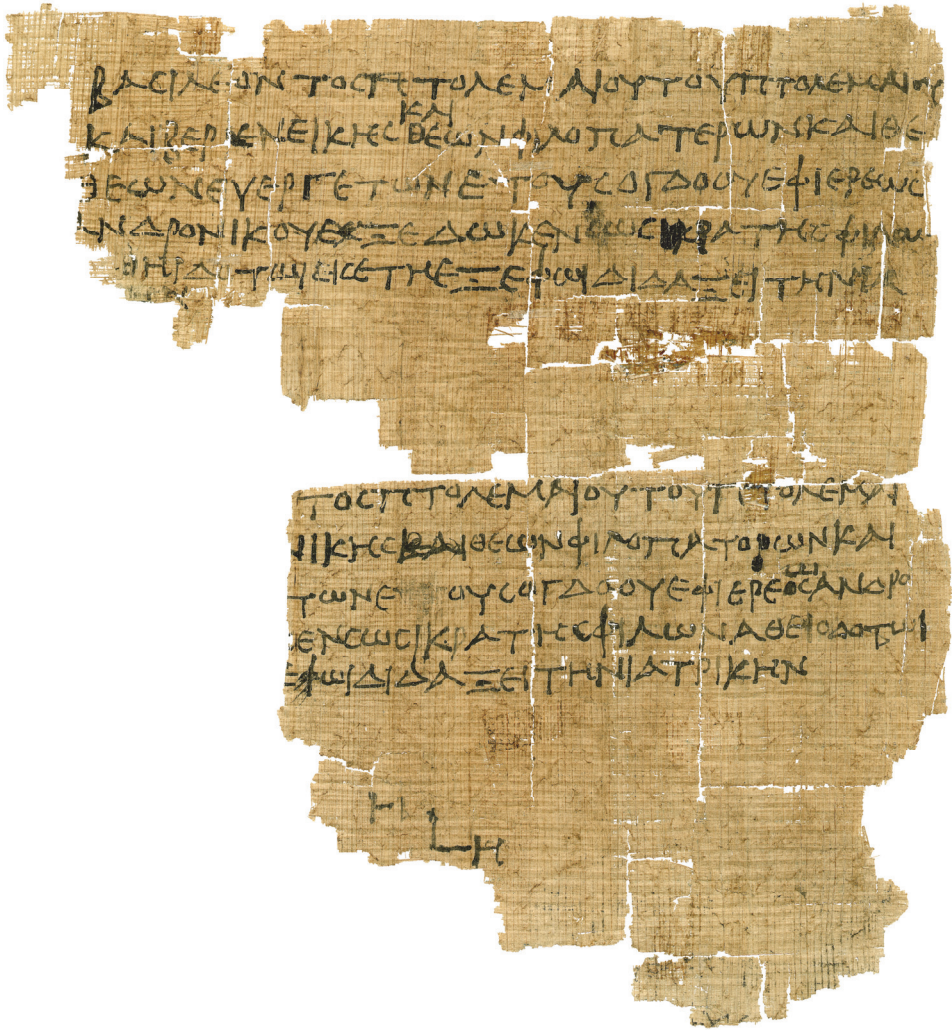 ΒΑΣΙΛΕΟΝΤΟΣ ΠΤΟΛΕΜΑΙΟΥ ΤΟΥ ΠΤΟΛΕΜΑΙΟΥ
ΚΑΙ
ΚΑΙ ΒΕΡΕΝΕΙΚΗΣ ΘΕΩΝ ΦΙΛΟΠΑΤΕΡΩΝ ΚΑΙ ΘΕ
ΘΕΩΝ ΕΥΕΡΓΕΤΩΝ ΕΤΟΥΣ ΟΓΔΟΥ ΕΦ ΙΕΡΕΩΣ
ΑΝΔΡΟΝΙΚΟΥ ΕΞΕΔΩΚΕΝ ΣΩΣΙΚΡΑΤΗΣ ΦΙΛΩΝ
ΕΤΗ ΕΞ ΕΦ ΩΙ ΔΙΔΑΞΕΙ ΤΗΝ ΙΑ
ΤΟΣ ΠΤΟΛΕΜΑΙΟΥ ΤΟΥ ΠΤΟΛΕΜΑΙ
ΝΙΚΗΣ ΚΑΙ ΘΕΩΝ ΦΙΛΟΠΑΤΟΡΩΝ ΚΑΙ
ΤΩΝ ΕΤΟΥΣ ΟΓΔΟΟΥ ΕΦ ΙΕΡΕΩΣ ΑΝΔΡΟ
ΕΝ ΣΩΣΙΚΡΑΤΗΣ ΦΙΛΩΝΑ ΘΕΙΟΔΟΤΩΙ
ΕΦ ΩΙ ΔΙΔΑΞΕΙ ΤΗΝ ΙΑΤΡΙΚΗΝ
Η
LΗ